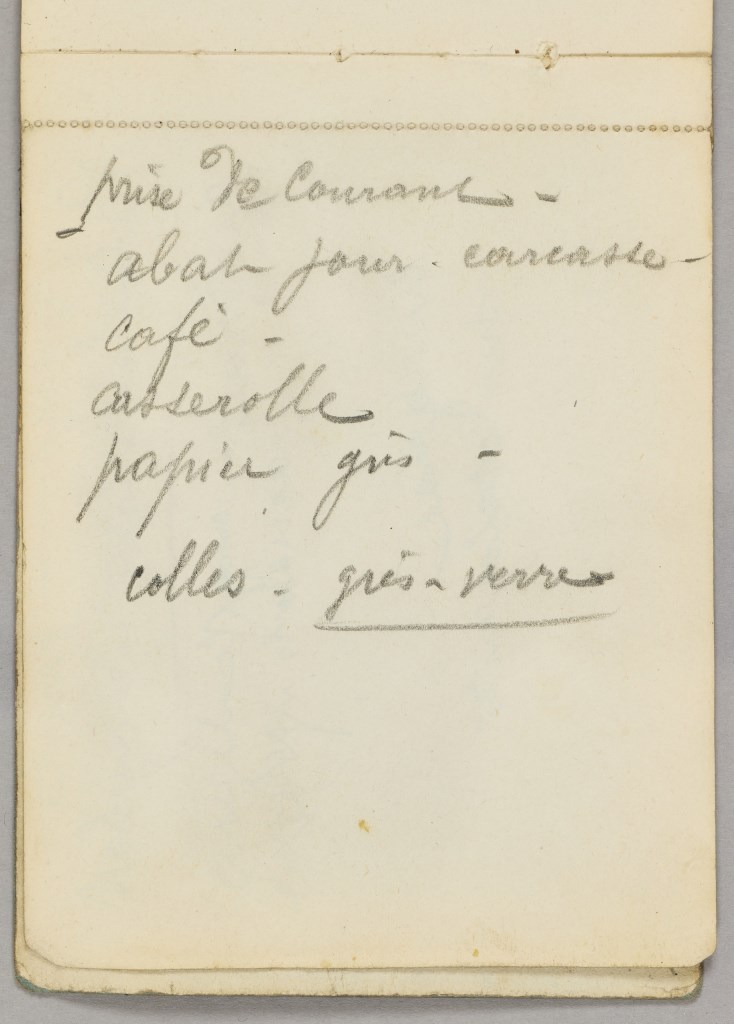 prise de Courant -
abat jour - carcasse -
café -
casserolle
papier gris -
colles - grès - verre